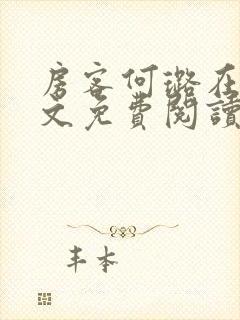 房客何璐在
文免費閱讀
丰本